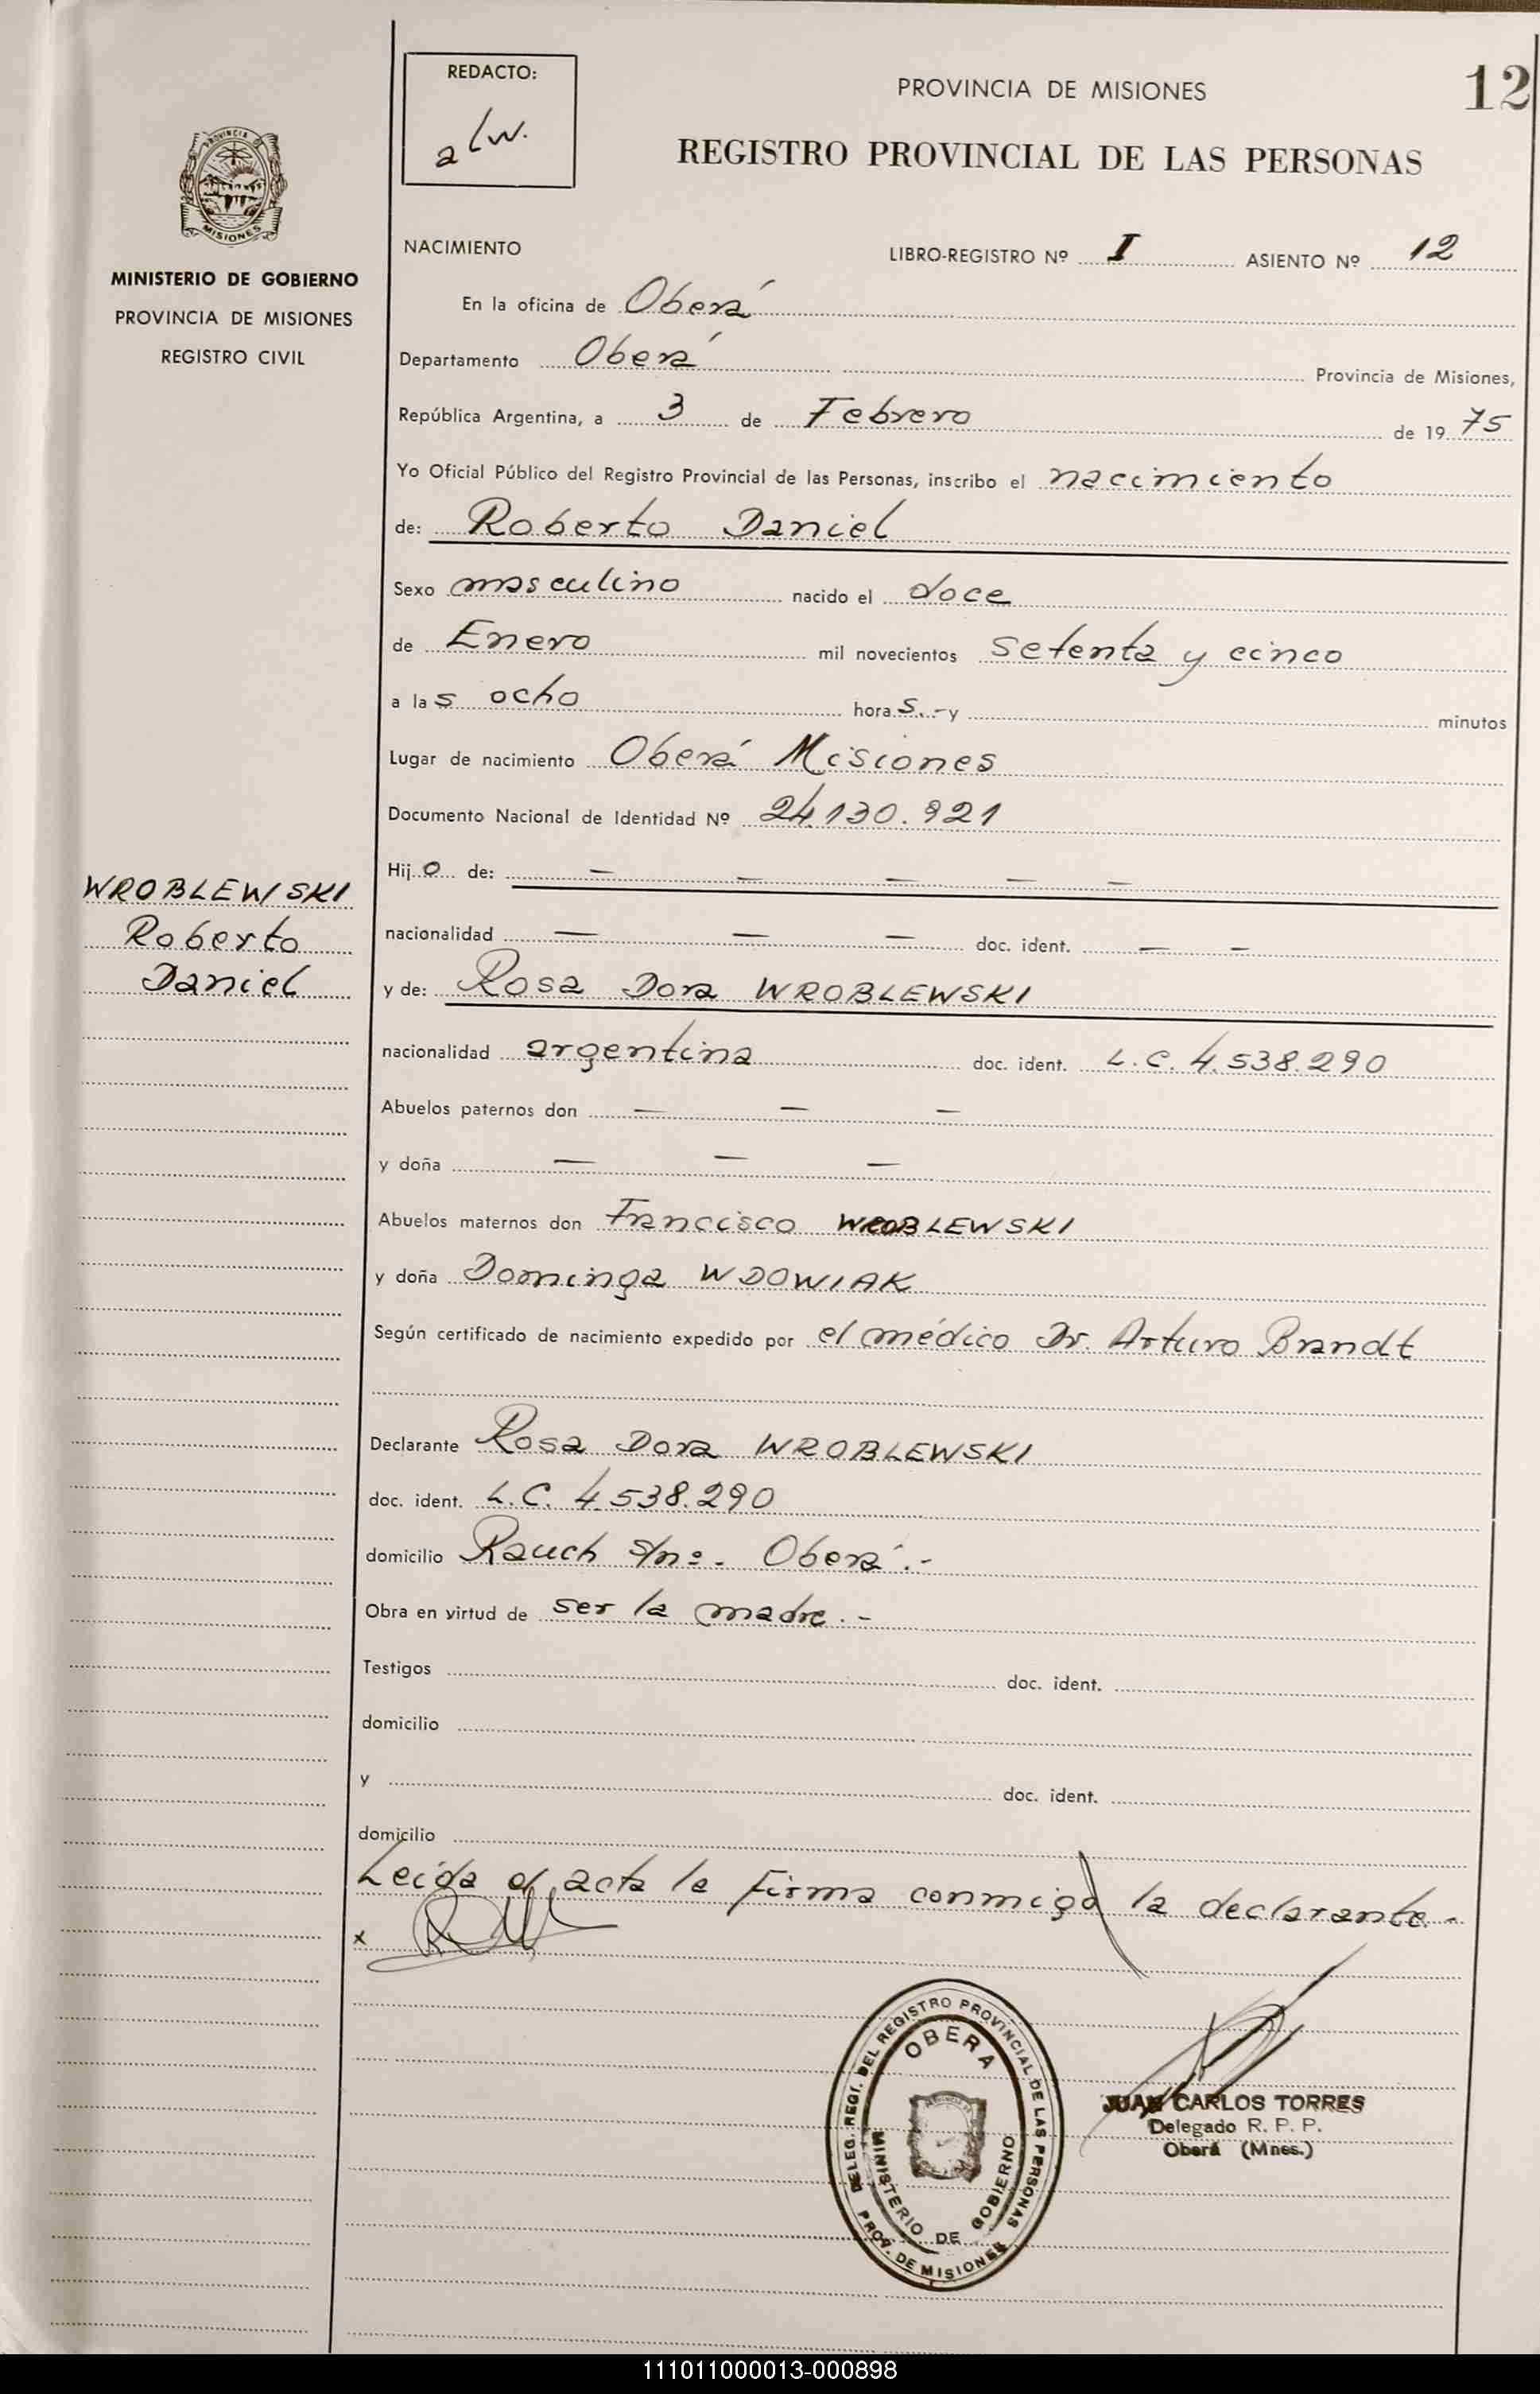 REDACTO:
alw.
PROVINCIA DE MISIONES
12
REGISTRO PROVINCIAL DE LAS PERSONAS
PROVINCIA
MISIONES
MINISTERIO DE GOBIERNO
PROVINCIA DE MISIONES
REGISTRO CIVIL
NACIMIENTO LIBRO-REGISTRO Nº I ASIENTO Nº 12
En la oficina de Oberá
Departamento Oberá Provincia de Misiones,
República Argentina, a 3 de Febrero de 1975
Yo Oficial Público del Registro Provincial de las Personas, inscribo el nacimiento
de: Roberto Daniel
Sexo masculino nacido el doce
de Enero mil novecientos setenta y cinco
a las ocho horas.- y minutos
Lugar de nacimiento Oberá Misiones
Documento Nacional de Identidad Nº 24.130.921
Hijo de: — — — — —
nacionalidad — — — doc. ident. — —
y de: Rosa Dora WROBLEWSKI
nacionalidad argentina doc. ident. L.C. 4.538.290
Abuelos paternos don — — —
y doña — — —
Abuelos maternos don Francisco WROBLEWSKI
y doña Dominga WDOWIAK
Según certificado de nacimiento expedido por el médico Dr. Arturo Brandt
Declarante Rosa Dora WROBLEWSKI
doc. ident. L.C. 4.538.290
domicilio Rauch s/nº.- Oberá.-
Obra en virtud de ser la madre.-
Testigos doc. ident.
domicilio
y doc. ident.
domicilio
Leída el acta la firma conmigo la declarante.-
x
WROBLEWSKI
Roberto
Daniel
DELEG. REGI. DEL REGISTRO PROVINCIAL DE LAS PERSONAS
PROV. DE MISIONES
OBERA
MINISTERIO DE GOBIERNO
JUAN CARLOS TORRES
Delegado R. P. P.
Oberá (Mnes.)
111011000013-000898